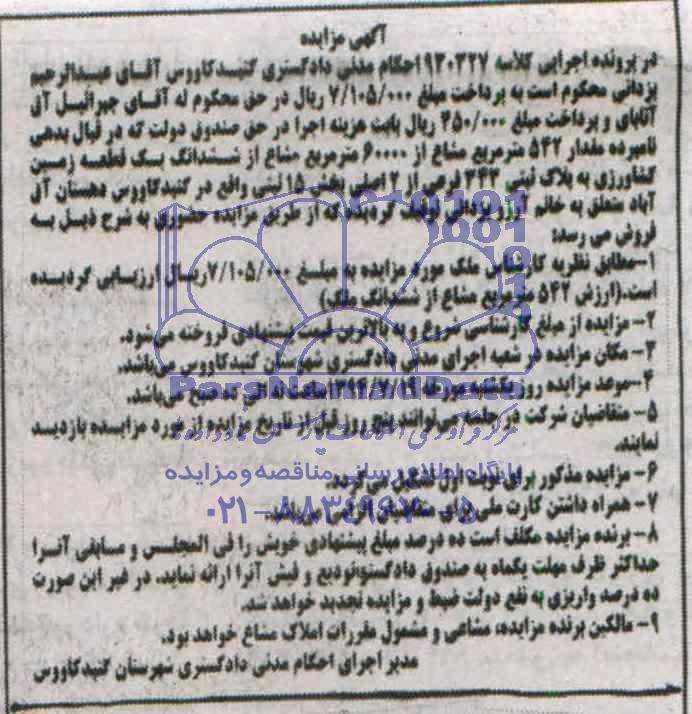 آگهی مزایده
در پرونده اجرایی کلاسه ۹۳۰۳۲۷ احکام مدنی دادگستری گنبدکاووس آقای عبدالرحیم
یزدانی محکوم است به پرداخت مبلغ ۷/۱۰۵/۰۰۰ ریال در حق محکوم له آقای جبرائیل آق
آتابای و پرداخت مبلغ ۳۵۰/۰۰۰ ریال بابت هزینه اجرا در حق صندوق دولت که در قبال بدهی
نامبرده مقدار ۵۴۲ مترمربع مشاع از ۶۰۰۰۰ مترمربع مشاع از ششدانگ یک قطعه زمین
کشاورزی به پلاک ثبتی ۳۴۳ فرعی از ۲ اصلی بخش ۱۵ ثبتی واقع در گنبدکاووس دهستان آق
آباد متعلق به خانم آرزو یزدانی توقیف گردیده که از طریق مزایده حضوری به شرح ذیل به
فروش می رسد:
۱-مطابق نظریه کارشناس ملک مورد مزایده به مبلغ ۷/۱۰۵/۰۰۰ریال ارزیابی گردیده
است.(ارزش ۵۴۲ مترمربع مشاع از ششدانگ ملک)
۲- مزایده از مبلغ کارشناسی شروع و به بالاترین قیمت پیشنهادی فروخته می‌شود.
۳- مکان مزایده در شعبه اجرای مدنی دادگستری شهرستان گنبدکاووس می‌باشد.
۴-موعد مزایده روز یکشنبه مورخه ۱۳۹۴/۷/۱۹ ساعت نه الی ده صبح می‌باشد.
ParsNamadData
۵- متقاضیان شرکت در جلسه می‌توانند پنج روز قبل از تاریخ مزایده از مورد مزایده بازدید
نمایند.
پایگاه اطلاع رسانی مناقصه و مزایده
۶- مزایده مذکور برای نوبت اول تشکیل می‌گردد.
۷- همراه داشتن کارت ملی برای متقاضیان الزامی می‌باشد.
۰۲۱-۸۸۳۴۹۶۷۰-۵
۸- برنده مزایده مکلف است ده درصد مبلغ پیشنهادی خویش را فی المجلس و مابقی آنرا
حداکثر ظرف مهلت یکماه به صندوق دادگستر تودیع و فیش آنرا ارائه نماید. در غیر این صورت
ده درصد واریزی به نفع دولت ضبط و مزایده تجدید خواهد شد.
۹- مالکین برنده مزایده، مشاعی و مشمول مقررات املاک مشاع خواهد بود.
مدیر اجرای احکام مدنی دادگستری شهرستان گنبدکاووس